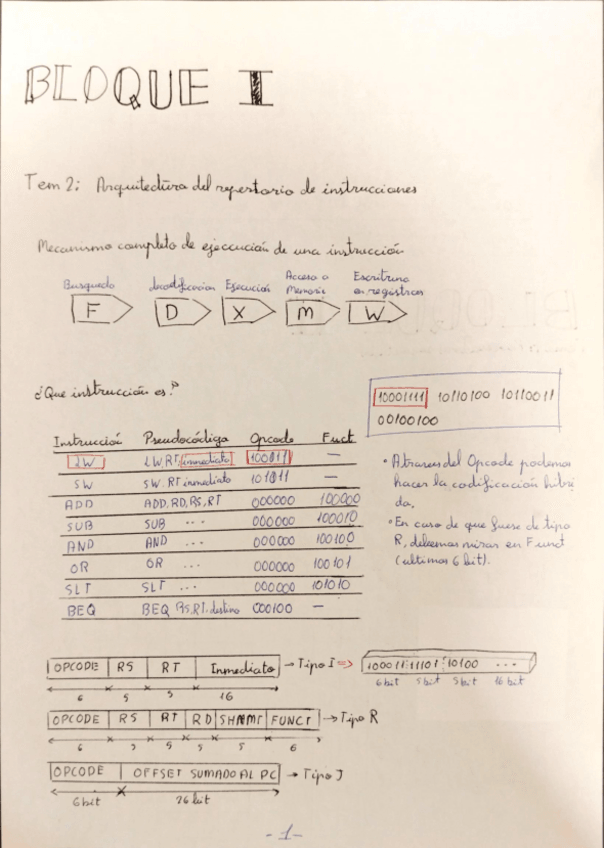 BLOQUE I
Tem 2: Arquitectura del repertorio de instrucciones
Mecanismo completo de ejeccución de una instrucción
Busqueda decodificacion Ejecución Acceso a Memoria Escritura en registros
F D X M W
¿Que instrucción es?
10001111 10110100 10110011
00100100
Instrucción Pseudocódigo Opcode Funct
LW LW RT inmediato 100011 —
SW SW RT inmediato 101011 —
ADD ADD, RD, RS, RT 000000 100000
SUB SUB ... 000000 100010
AND AND ... 000000 100100
OR OR ... 000000 100101
SLT SLT ... 000000 101010
BEQ BEQ RS, RT, destino 000100 —
• Atraves del Opcode podemos
hacer la codificación hibri
da.
• En caso de que fuese de tipo
R, debemos mirar en Funct
(ultimos 6 bit).
OPCODE RS RT Inmediato → Tipo I => 100011 11101 10100 ...
6 5 5 16 6 bit 5 bit 5 bit 16 bit
OPCODE RS RT RD SHAMT FUNCT → Tipo R
6 5 5 5 5 6
OPCODE OFFSET SUMADO AL PC → Tipo J
6 bit 26 bit
- 1 -